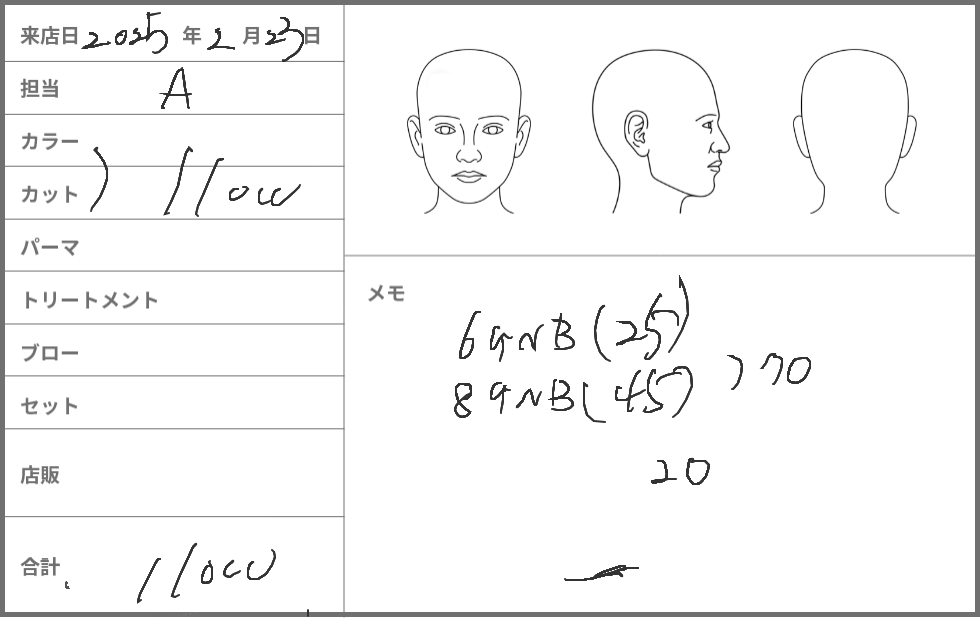 来店日 2025 年 2 月 23 日
担当 A
カラー
カット ) 11000
パーマ
トリートメント
ブロー
セット
店販
合計 11000
メモ
69NB (25)
89NB (45) ) 70
20